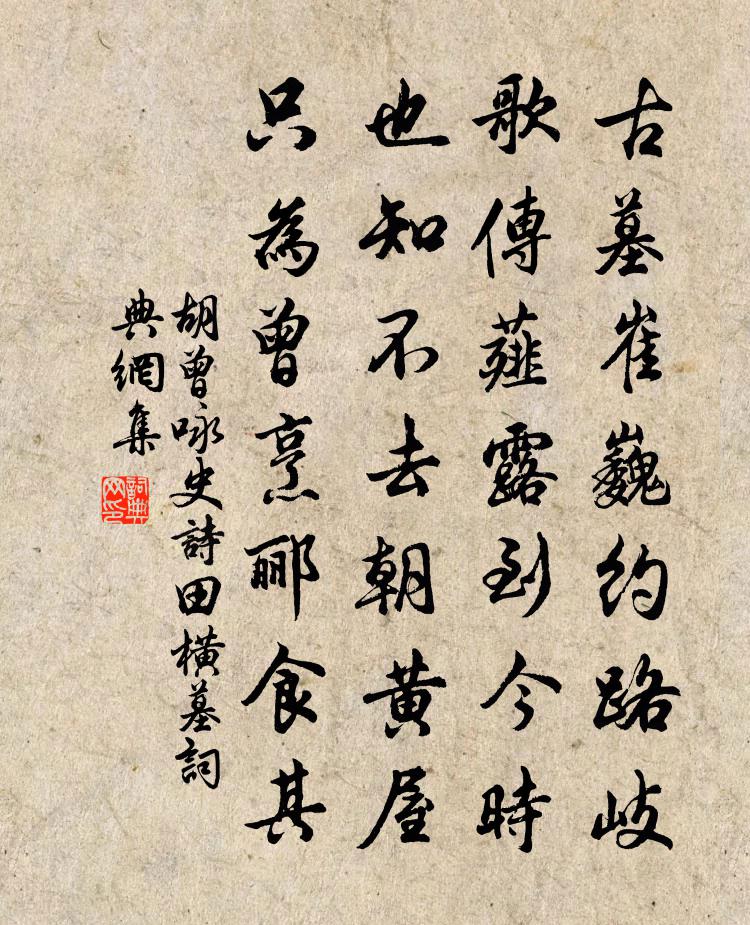 古墓崔巍約路岐
歌傳薤露到今時
也知不去朝黄屋
只為曾烹酈食其
胡曾咏史詩田橫墓詞
典網集
詞典
网印